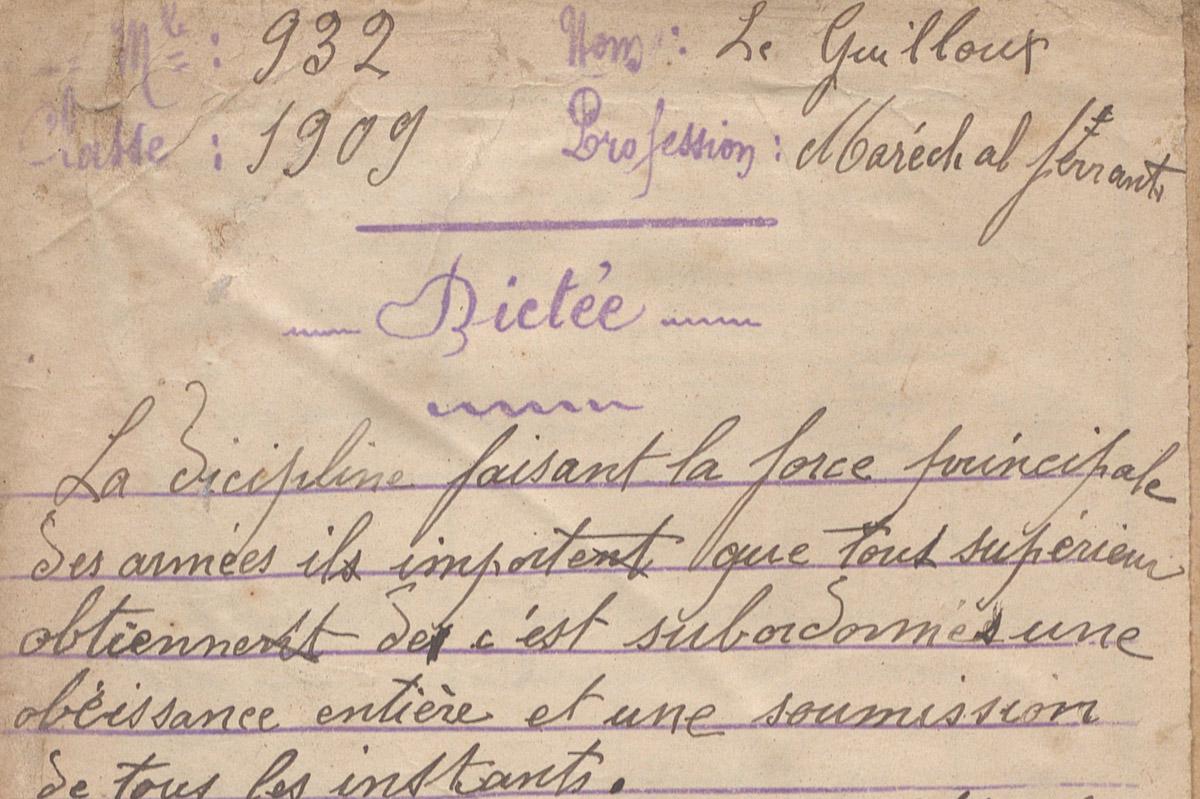 Mle : 932 Nom : Le Guilloux
Classe : 1909 Profession : Maréchal ferrant
Dictée
La dicipline faisant la force principale
des armées ils importent que tout supérieur
obtiennent des c'est subordonnés une
obéissance entière et une soumission
de tous les instants.